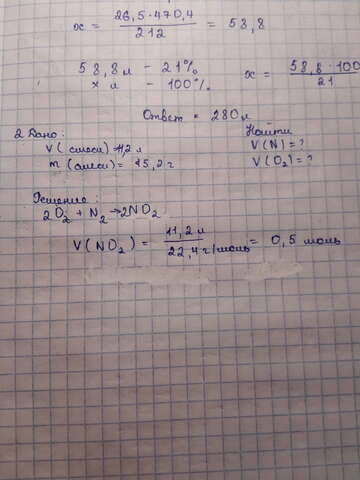 x = 26,5·470,4 / 212 = 58,8
58,8 л – 21%
x л – 100%.
x = 58,8·100 / 21
Ответ = 280 л
2 Дано:
V(смеси) = 11,2 л
m(смеси) = 15,2 г
Найти
V(N) = ?
V(O₂) = ?
Решение:
2O₂ + N₂ → 2NO₂
V(NO₂) = 11,2 л / 22,4 г/моль = 0,5 моль